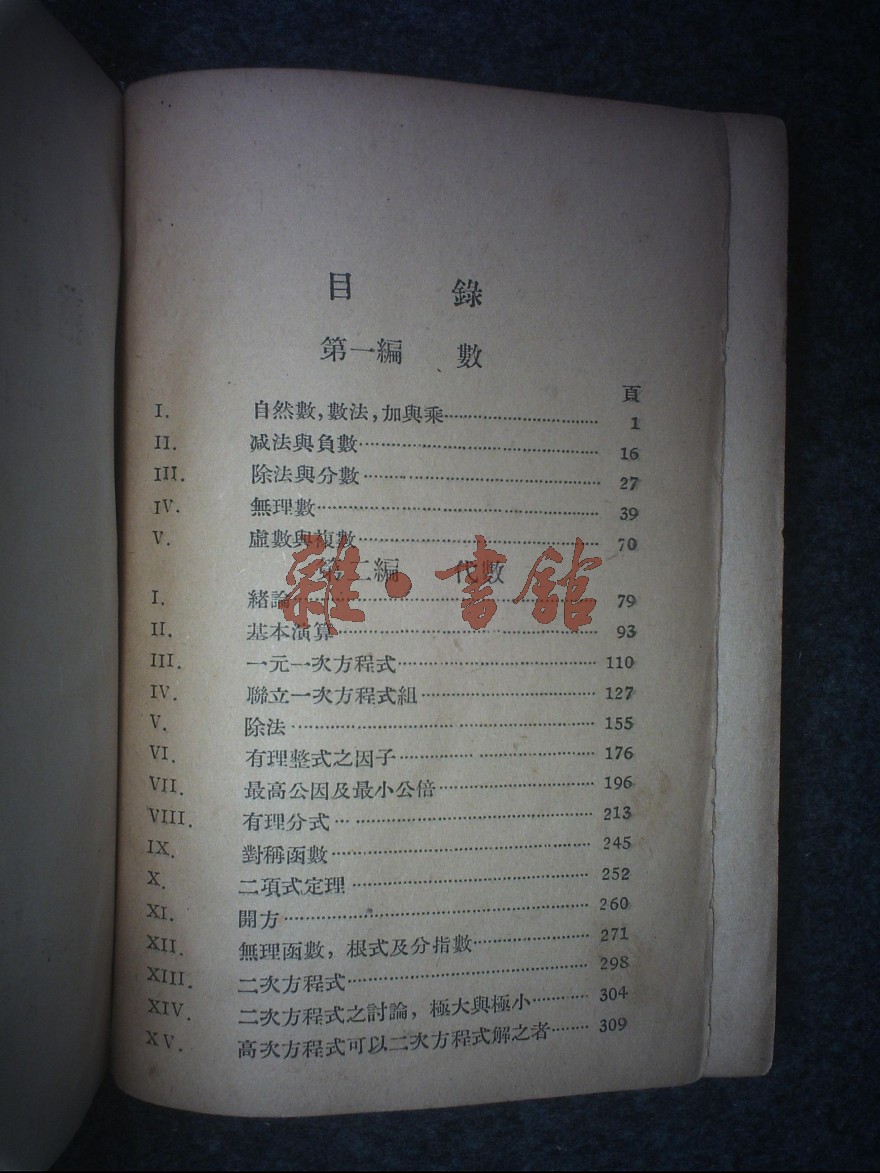 目 錄
第一編 數
頁
I. 自然數,數法,加與乘 1
II. 減法與負數 16
III. 除法與分數 27
IV. 無理數 39
V. 虛數與複數 70
第二編 代數
雜·書館
I. 緒論 79
II. 基本演算 93
III. 一元一次方程式 110
IV. 聯立一次方程式組 127
V. 除法 155
VI. 有理整式之因子 176
VII. 最高公因及最小公倍 196
VIII. 有理分式 213
IX. 對稱函數 245
X. 二項式定理 252
XI. 開方 260
XII. 無理函數,根式及分指數 271
XIII. 二次方程式 298
XIV. 二次方程式之討論,極大與極小 304
XV. 高次方程式可以二次方程式解之者 309